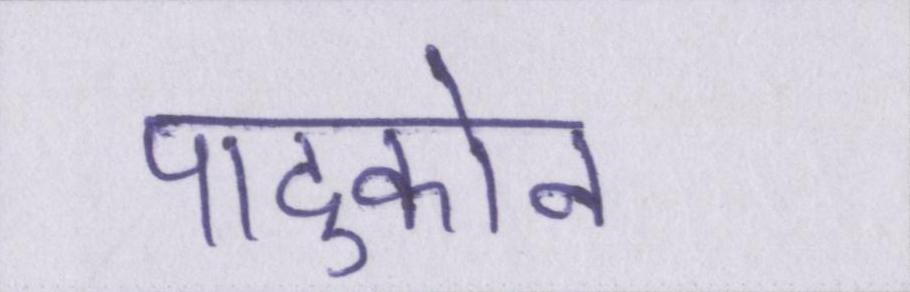 पादुकोन